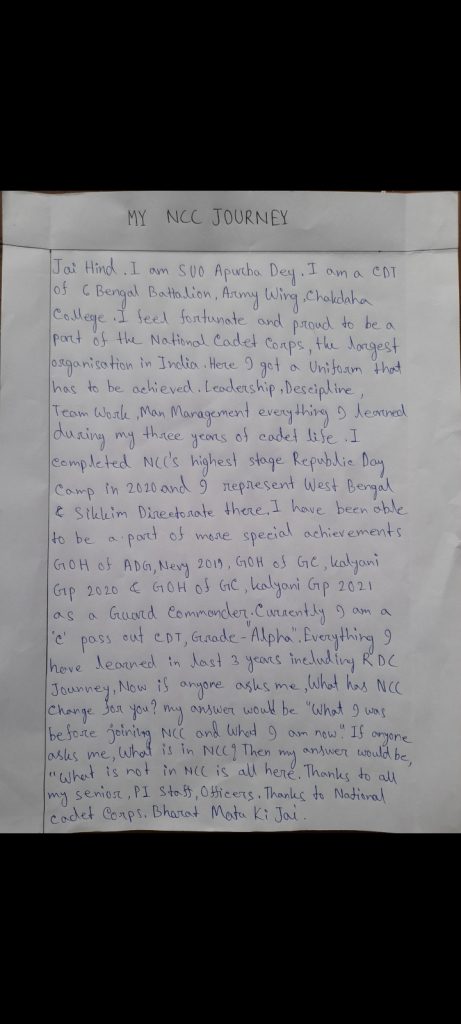 MY NCC JOURNEY
Jai Hind. I am SUO Apurba Dey. I am a CDT
of 6 Bengal Battalion, Army Wing, Chakdaha
College. I feel fortunate and proud to be a
part of the National Cadet Corps, the largest
organisation in India. Here I got a Uniform that
has to be achieved. Leadership, Descipline,
Team Work, Man Management everything I learned
during my three years of cadet life. I
completed NCC's highest stage Republic Day
Camp in 2020 and I represent West Bengal
& Sikkim Directorate there. I have been able
to be a part of more special achievements
GOH of ADG, Nevy 2019, GOH of GC, kalyani
Gp 2020 & GOH of GC, kalyani Gp 2021
as a Guard Commander. Currently I am a
'C' pass out CDT, Grade-"Alpha". Everything I
have learned in last 3 years including RDC
Journey, Now if anyone asks me, What has NCC
change for you? my answer would be "What I was
before joining NCC and What I am now". If anyone
asks me, What is in NCC? Then my answer would be,
"What is not in NCC is all here. Thanks to all
my senior, PI Staff, Officers. Thanks to National
cadet Corps. Bharat Mata Ki Jai.